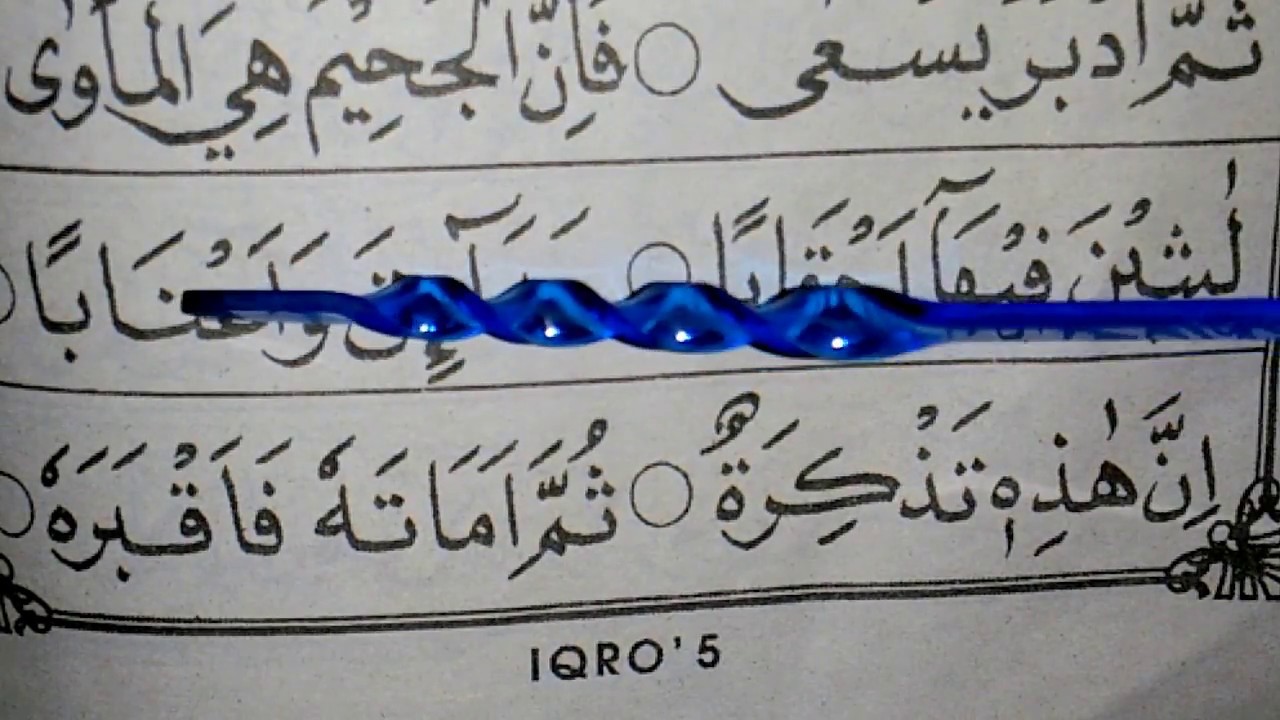 ثُمَّ اَدبر يسعى ○ فَاِنَّ الْجَحِيْمَ هِيَ الْمَأْوٰى
لٰبِثِيْنَ فِيْهَآ اَحْقَابًا ○ وَاَعْنَابًا ○
اِنَّ هٰذِهٖ تَذْكِرَةٌ ○ ثُمَّ اَمَاتَهٗ فَاَقْبَرَهٗ ○
IQRO' 5